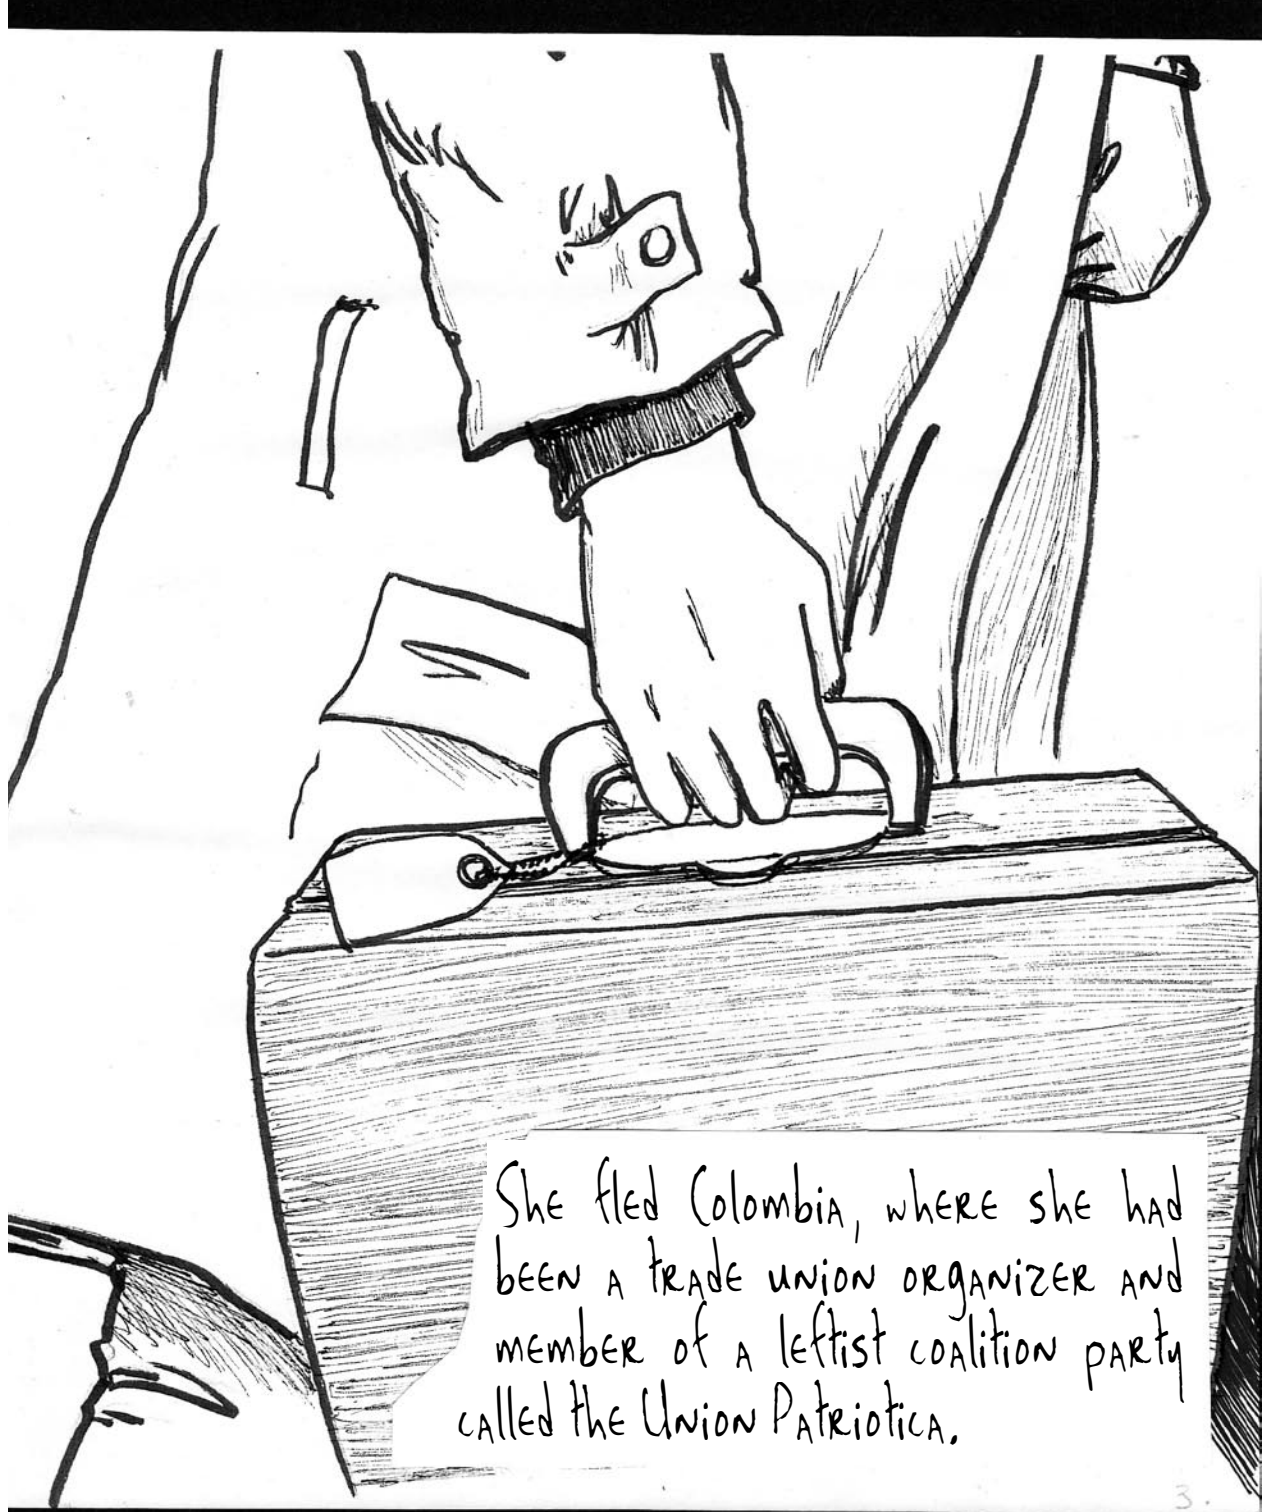 She fled Colombia, where she had
been a trade union organizer and
member of a leftist coalition party
called the Union Patriotica.
3.